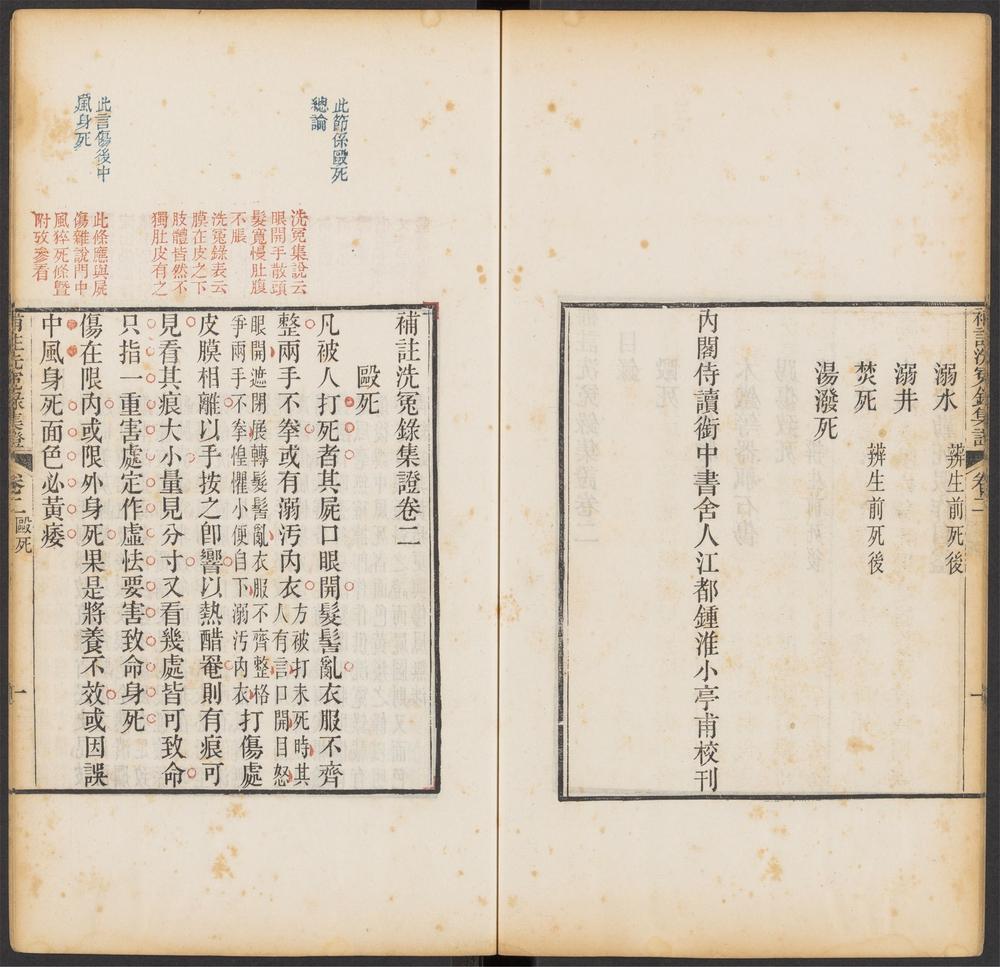 補註洗冤錄集證
卷二
一
溺水 辨生前死後
溺井
焚死 辨生前死後
湯潑死
內閣侍讀銜中書舍人江都鍾淮小亭甫校刊
此節係毆死
總論
此言傷後中
風身死
洗冤集說云
眼開手散頭
髮寬慢肚腹
不脹
洗冤錄表云
膜在皮之下
肢體皆然不
獨肚皮有之
此條應與屍
傷雜說門中
風猝死條暨
附攷參看
補註洗冤錄集證卷二
毆死
凡被人打死者其屍口眼開髮髻亂衣服不齊
整兩手不拳或有溺污內衣方被打未死時其
人有言口開目怒
眼開遮閉展轉髮髻亂衣服不齊整格
爭兩手不拳惶懼小便自下溺污內衣打傷處
皮膜相離以手按之卽響以熱醋罨則有痕可
見看其痕大小量見分寸又看幾處皆可致命
只指一重害處定作虛怯要害致命身死
傷在限內或限外身死果是將養不效或因誤
中風身死面色必黃痿
補註洗冤錄集證
卷二毆死
一